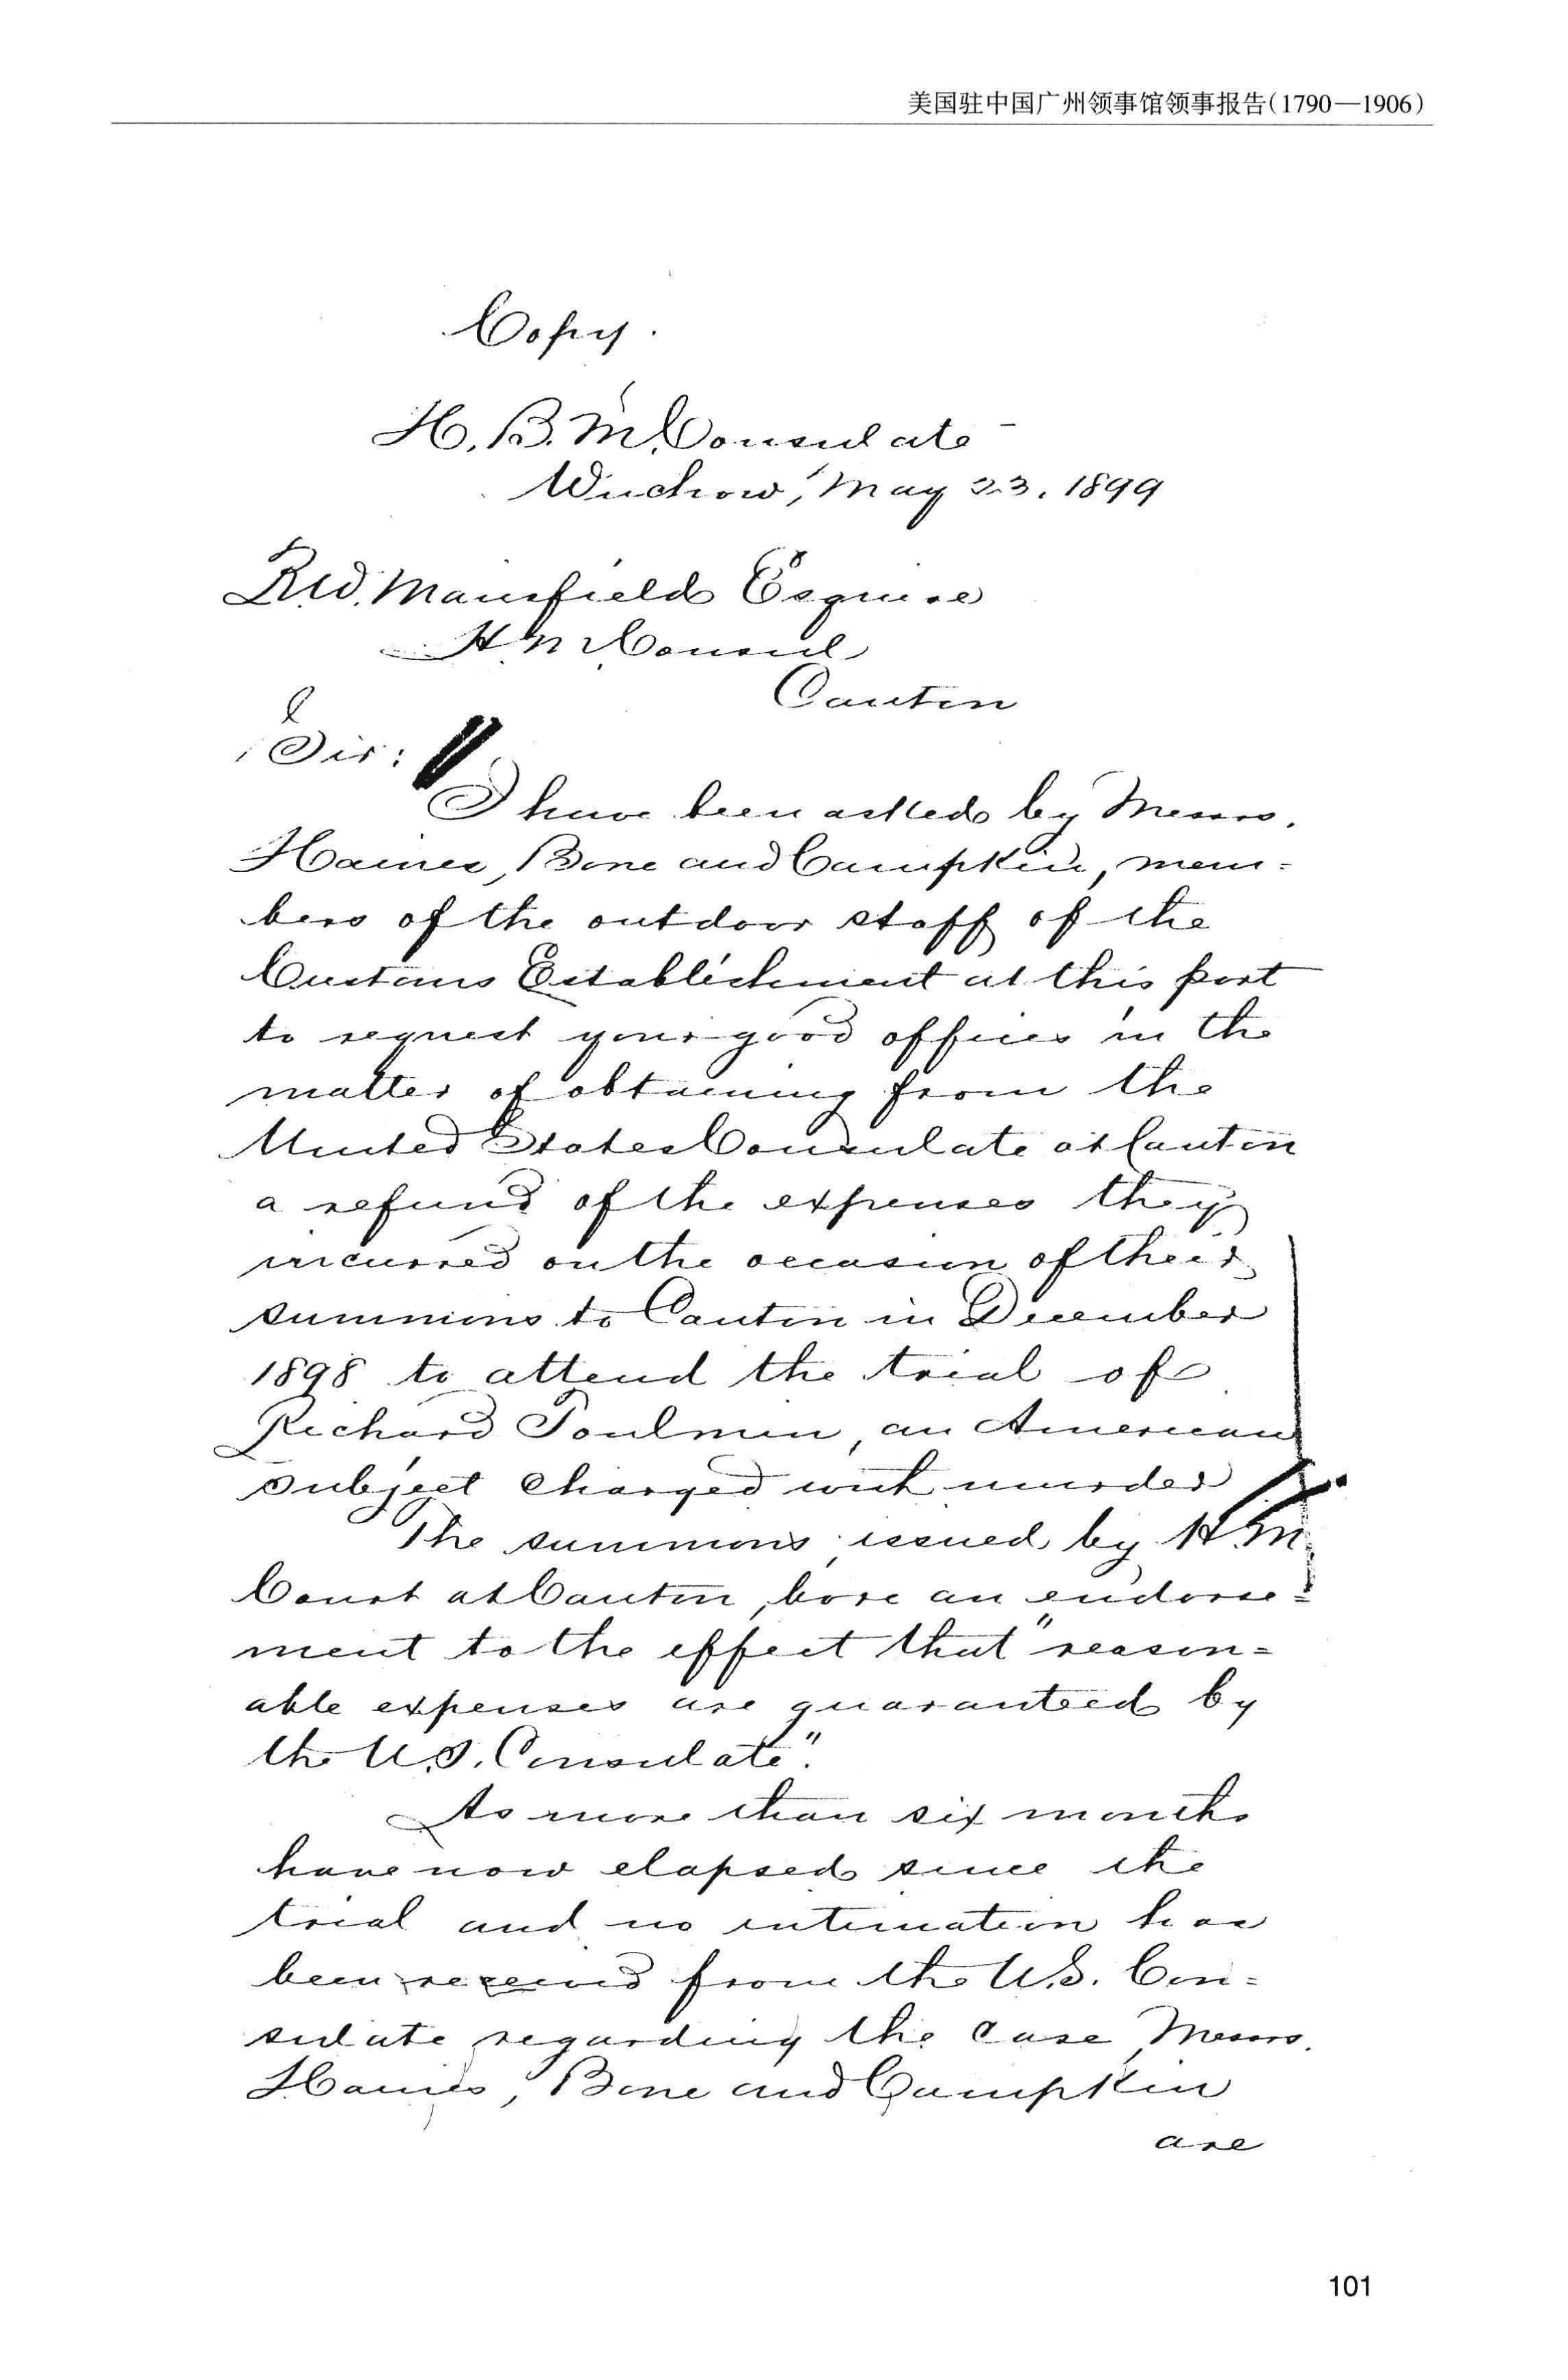 美国驻中国广州领事馆领事报告(1790—1906)
Copy.
H. B. M. Consulate
Wuchow, May 23. 1899
R.W. Mansfield Esquire
H M Consul
Canton
Sir:
I have been asked by Messrs.
Haines, Bone and Campkin, mem=
bers of the outdoor staff of the
Customs Establishment at this port
to request your good offices in the
matter of obtaining from the
United States Consulate at Canton
a refund of the expenses they
incurred on the occasion of their
summons to Canton in December
1898 to attend the trial of
Richard Toulmin, an American
subject charged with murder
The summons issued by H.M.
Court at Canton, bore an endorse=
ment to the effect that "reason=
able expenses are guaranteed by
the U.S. Consulate".
As more than six months
have now elapsed since the
trial and no intimation has
been received from the U.S. Con=
sulate regarding the case, Messrs.
Haines, Bone and Campkin
are
101